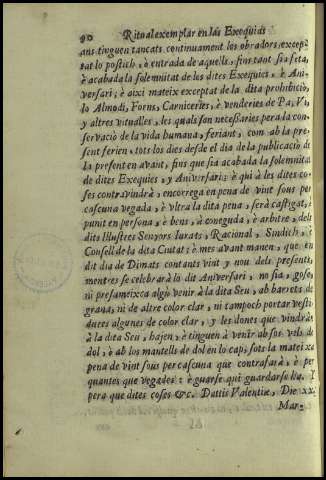 90 Ritual exemplar en las Exequias
ans tinguen tancats continuament los obradors, excep
tat lo postich, è entrada de aquells, fins tant sia feta,
è acabada la solemnitat de les dites Exequies, è Ani-
versari; è aixi mateix exceptat de la dita prohibiciò,
lo Almodi, Forns, Carniceries, è venderies de Pa, Vi,
y altres vitualles, les quals son necessaries pera la con-
servaciò de la vida humana, ferian, com ab la pre-
sent ferien, tots los dies desde el dia de la publicaciò de
la present en avant, fins que sia acabada la solemnitat
de dites Exequies, y Aniversari: è qui à les dites co-
ses contravindrà, encorrega en pena de vint sous per
cascuna vegada, è vltra la dita pena, serà castigat, è
punit en persona, è bens, à coneguda, è arbitre, dels
dits Illustres Senyors Iurats, Racional, Sindich, è
Consell de la dita Ciutat; è mes avant manen, que en
dit dia de Dimats contants vint y nou dels presents,
mentres se celebrarà lo dit Aniversari, no sia, gose,
ni presumeixca algù venir à la dita Seu, ab barrets de
grana, ni de altre color clar, ni tampoch portar vesti-
dures algunes de color clar, y les dones que vindràn
à la dita Seu, hajen, è tinguen à venir ab sos vels de
dol, è ab los mantells de dol en lo cap, sots la mateixa
pena de vint sous per cascuna que contrafarà, è per
quantes que vegades: è guarse qui guardarse ha. I
pera que dites coses &c. Dattis Valentiæ, Die xx.
Mar-